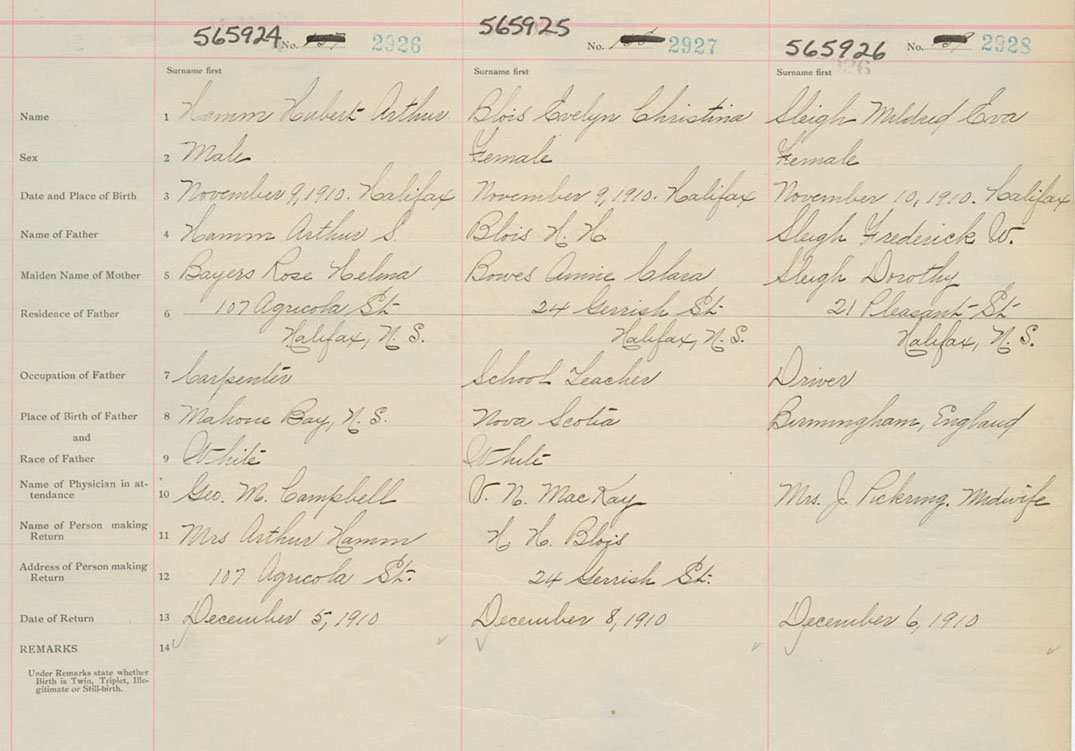 565924 No. 2926 565925 No. 2927 565926 No. 2928
Surname first Surname first Surname first
Name 1 Hamm Hubert Arthur Blois Evelyn Christina Sleigh Mildred Eva
Sex 2 Male Female Female
Date and Place of Birth 3 November 9, 1910. Halifax November 9, 1910. Halifax November 10, 1910. Halifax
Name of Father 4 Hamm Arthur S. Blois H. H. Sleigh Frederick W.
Maiden Name of Mother 5 Bayers Rose Helma Bowes Annie Clara Sleigh Dorothy
Residence of Father 6 107 Agricola St. 24 Gerrish St. 21 Pleasant St.
Halifax, N. S. Halifax, N. S. Halifax, N. S.
Occupation of Father 7 Carpenter School Teacher Driver
Place of Birth of Father 8 Mahone Bay, N. S. Nova Scotia Birmingham, England
and
Race of Father 9 White White
Name of Physician in at-
tendance 10 Geo. M. Campbell V. N. MacKay Mrs. J. Pickring. Midwife
Name of Person making
Return 11 Mrs Arthur Hamm H. H. Blois
Address of Person making
Return 12 107 Agricola St. 24 Gerrish St.
Date of Return 13 December 5, 1910 December 8, 1910 December 6, 1910
REMARKS 14
Under Remarks state whether
Birth is Twin, Triplet, Ille-
gitimate or Still-birth.